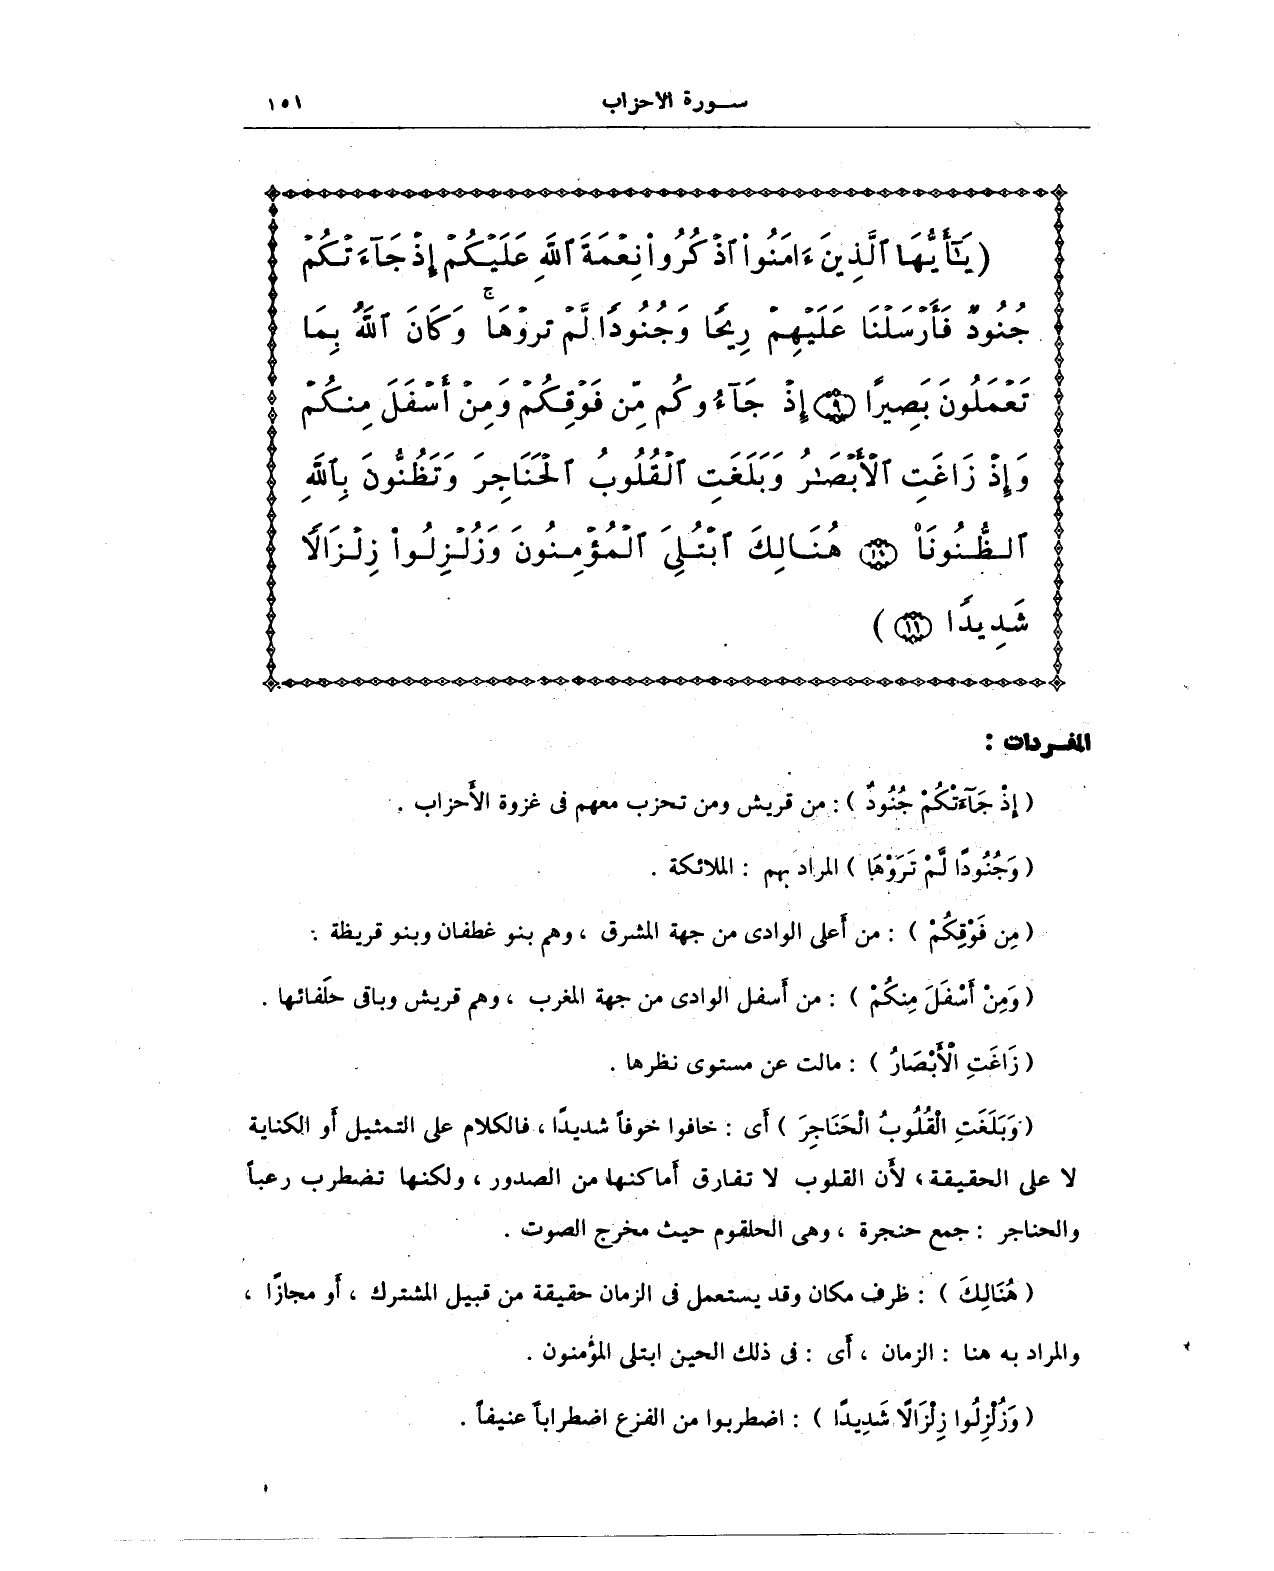 سورة الاحزاب ١٥١
(يَٰٓأَيُّهَا ٱلَّذِينَ ءَامَنُوا۟ ٱذْكُرُوا۟ نِعْمَةَ ٱللَّهِ عَلَيْكُمْ إِذْ جَآءَتْكُمْ
جُنُودٌ فَأَرْسَلْنَا عَلَيْهِمْ رِيحًا وَجُنُودًا لَّمْ تَرَوْهَا ۚ وَكَانَ ٱللَّهُ بِمَا
تَعْمَلُونَ بَصِيرًا ٩ إِذْ جَآءُوكُم مِّن فَوْقِكُمْ وَمِنْ أَسْفَلَ مِنكُمْ
وَإِذْ زَاغَتِ ٱلْأَبْصَٰرُ وَبَلَغَتِ ٱلْقُلُوبُ ٱلْحَنَاجِرَ وَتَظُنُّونَ بِٱللَّهِ
ٱلظُّنُونَا۠ ١٠ هُنَالِكَ ٱبْتُلِىَ ٱلْمُؤْمِنُونَ وَزُلْزِلُوا۟ زِلْزَالًا
شَدِيدًا ١١)
المفردات :
( إِذْ جَآءَتْكُمْ جُنُودٌ ) : من قريش ومن تحزب معهم فى غزوة الأَحزاب .
( وَجُنُودًا لَّمْ تَرَوْهَا ) المراد بهم : الملائكة .
( مِن فَوْقِكُمْ ) : من أَعلى الوادى من جهة المشرق ، وهم بنو غطفان وبنو قريظة .
( وَمِنْ أَسْفَلَ مِنكُمْ ) : من أَسفل الوادى من جهة المغرب ، وهم قريش وباقى حلفائها .
( زَاغَتِ الْأَبْصَارُ ) : مالت عن مستوى نظرها .
( وَبَلَغَتِ الْقُلُوبُ الْحَنَاجِرَ ) أَى : خافوا خوفاً شديدًا ، فالكلام على التمثيل أَو الكناية
لا على الحقيقة ، لأَن القلوب لا تفارق أَماكنها من الصدور ، ولكنها تضطرب رعباً
والحناجر : جمع حنجرة ، وهى الحلقوم حيث مخرج الصوت .
( هُنَالِكَ ) : ظرف مكان وقد يستعمل فى الزمان حقيقة من قبيل المشترك ، أَو مجازًا ،
والمراد به هنا : الزمان ، أَى : فى ذلك الحين ابتلى المؤمنون .
( وَزُلْزِلُوا زِلْزَالًا شَدِيدًا ) : اضطربوا من الفزع اضطراباً عنيفاً .